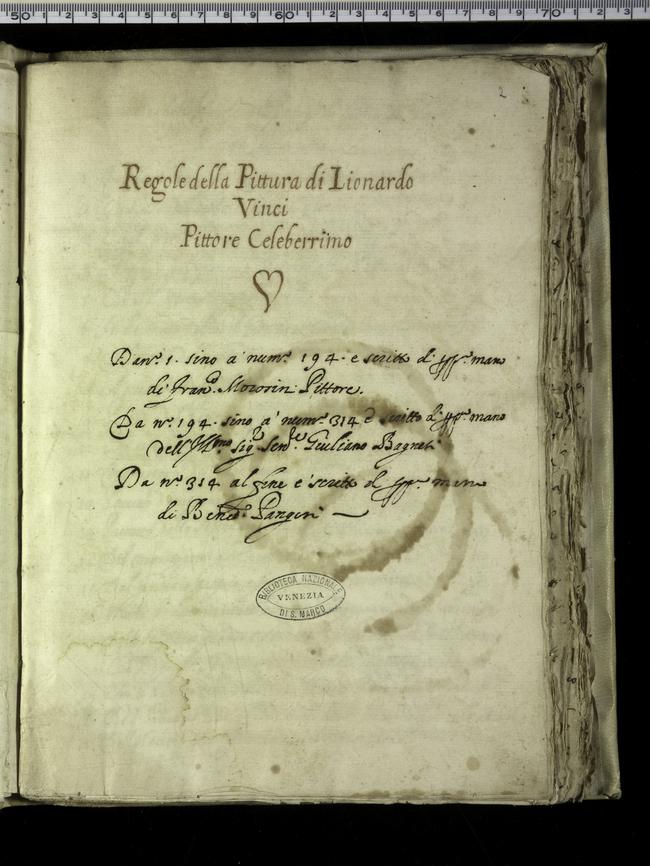 2
Regole della Pittura di Lionardo
Vinci
Pittore Celeberrimo
Da n.º 1. sino a' num.º 194. e scritto di pp.ª mano
di Fran.º Morosin Pittore.
Da n.º 194. sino a' num.º 314 è scritto di pp.ª mano
dell' Ill.mo Sig.r Sen.re Giuliano Bagnesi
Da n.º 314 al fine e' scritto di pp.ª mano
di Bened.º
BIBLIOTECA NAZIONALE
VENEZIA
DI S. MARCO
50 60 70